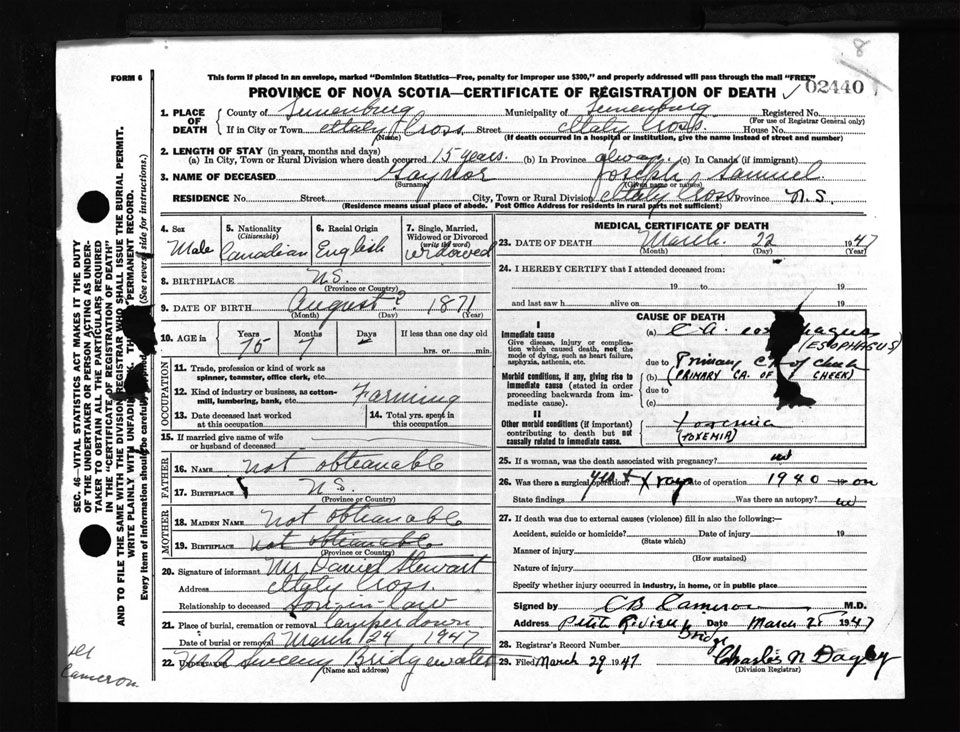 8
FORM 6
This form if placed in an envelope, marked "Dominion Statistics—Free, penalty for improper use $300," and properly addressed will pass through the mail "FREE"
PROVINCE OF NOVA SCOTIA—CERTIFICATE OF REGISTRATION OF DEATH ✓ 02440
1. PLACE OF DEATH
County of Lunenburg Municipality of Lunenburg Registered No.
(For use of Registrar General only)
If in City or Town Italy Cross Street Italy Cross House No.
(Name) (If death occurred in a hospital or institution, give the name instead of street and number)
2. LENGTH OF STAY (in years, months and days)
(a) In City, Town or Rural Division where death occurred 15 years. (b) In Province always (c) In Canada (if immigrant)
3. NAME OF DECEASED Gaynor Joseph Samuel
(Surname) (Given name or names)
RESIDENCE No. Street City, Town or Rural Division Italy Cross Province N.S.
(Residence means usual place of abode. Post Office Address for residents in rural parts not sufficient)
4. Sex Male
5. Nationality (Citizenship) Canadian
6. Racial Origin English
7. Single, Married, Widowed or Divorced (write the word) widowed
8. BIRTHPLACE N.S.
(Province or Country)
9. DATE OF BIRTH August ? 1871
(Month) (Day) (Year)
10. AGE in Years 75 Months 7 Days If less than one day old hrs. or min.
OCCUPATION
11. Trade, profession or kind of work as spinner, teamster, office clerk, etc.
12. Kind of industry or business, as cotton-mill, lumbering, bank, etc. Farming
13. Date deceased last worked at this occupation
14. Total yrs. spent in this occupation
15. If married give name of wife or husband of deceased
FATHER
16. NAME Not obteanable
17. BIRTHPLACE N.S.
(Province or Country)
MOTHER
18. MAIDEN NAME Not obteanable
19. BIRTHPLACE Not obteanable
(Province or Country)
20. Signature of informant Mr Daniel Stewart
Address Italy Cross
Relationship to deceased Son-in-law
21. Place of burial, cremation or removal Camperdown
Date of burial or removal March 24 1947
22. UNDERTAKER Sweeny Bridgewater
(Name and address)
MEDICAL CERTIFICATE OF DEATH
23. DATE OF DEATH March 22 1947
(Month) (Day) (Year)
24. I HEREBY CERTIFY that I attended deceased from:
19 to 19
and last saw h alive on 19
CAUSE OF DEATH
I
Immediate cause
Give disease, injury or complication which caused death, not the mode of dying, such as heart failure, asphyxia, asthenia, etc.
(a) C.A.
(ESOPHAGUS)
due to Primary CA of cheek
Morbid conditions, if any, giving rise to immediate cause (stated in order proceeding backwards from immediate cause).
(b) (PRIMARY CA. OF CHEEK)
due to
(c)
II
Other morbid conditions (if important) contributing to death but not causally related to immediate cause.
Toxemia
(TOXEMIA)
25. If a woman, was the death associated with pregnancy?
26. Was there a surgical operation? yes + Xray Date of operation 1940
State findings Was there an autopsy? no
27. If death was due to external causes (violence) fill in also the following:—
Accident, suicide or homicide? Date of injury 19
(State which)
Manner of injury
(How sustained)
Nature of injury
Specify whether injury occurred in industry, in home, or in public place
Signed by CB Cameron M.D.
Address Petite Riviere Bridge Date March 25 1947
28. Registrar's Record Number
29. Filed March 29 1947. Charles N Dagley
(Division Registrar)
SEC. 46—VITAL STATISTICS ACT MAKES IT THE DUTY
OF THE UNDERTAKER OR PERSON ACTING AS UNDERTAKER
TO OBTAIN ALL THE PARTICULARS REQUIRED
IN THE "CERTIFICATE OF REGISTRATION OF DEATH"
AND TO FILE THE SAME WITH THE DIVISION REGISTRAR WHO SHALL ISSUE THE BURIAL PERMIT.
WRITE PLAINLY WITH UNFADING INK. THIS PERMANENT RECORD.
Every item of information should be carefully (See reverse side for instructions.)
Cameron